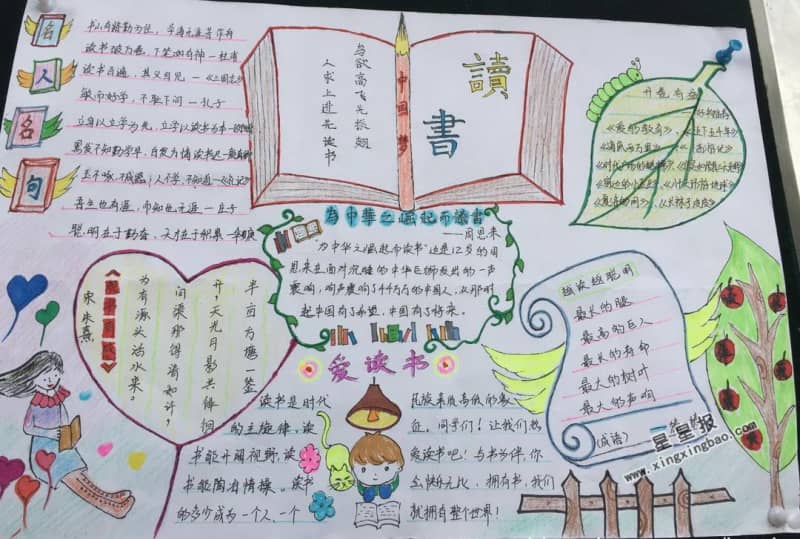 名人名句
书山有路勤为径，学海无涯苦作舟
读书破万卷，下笔如有神 — 杜甫
读书百遍，其义自见 — 《三国志》
敏而好学，不耻下问 — 孔子
玉不琢，不成器；人不学，不知道 — 《礼记》
吾生也有涯，而知也无涯 — 庄子
聪明在于勤奋，天才在于积累 — 华罗庚
鸟欲高飞先振翅
人求上进先读书
中国梦
讀書
开卷有益
好书推荐
《爱的教育》，《上下五千年》
为中華之崛起而讀書
——周恩来
“为中华之崛起而读书”这是12岁的周
恩来在面对沉睡的中华巨狮发出的一声
震响，响声震响了44万万的中国人，从那时
起中国有了希望，中国有了将来。
《观书有感》
宋 朱熹
半亩方塘一鉴
开，天光月影共徘徊
问渠那得清如许，
为有源头活水来。
越读越聪明
最长的腿
最高的巨人
最长的寿命
最大的树叶
最大的声响
(成语)
爱读书
读书是时代
的主旋律，读
书能开阔视野，读
书能陶冶情操。读书
的多少成为一个人、一个
民族素质高低的象
征。同学们！让我们热
爱读书吧！与书为伴，你
会快乐无比、拥有书，我们
就拥有整个世界！
星星报
www.xingxingbao.com